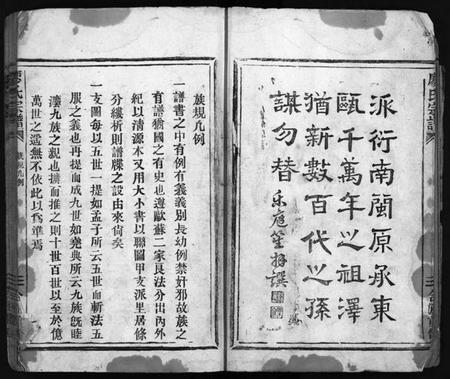 派衍南閩原承東
甌千萬年之祖澤
猶新數百代之孫
謀勿替
族規凡例
一譜書之中有例有義義別長幼例禁奸邪故族之
有譜猶國之有史也邊歐蘇二家良法分出內外
紀以清源本又用大小書以聯圖甲支派里居條
分縷析則譜牒之設由來尙矣
一支圖每以五世一提如孟子所云五世而斬法五
服之義也再提而成九世如堯典所云九族旣睦
湊九族之親也擴而推之則十世百世以至於億
萬世之遙無不依此以爲準焉
廖氏宗譜
族規凡例